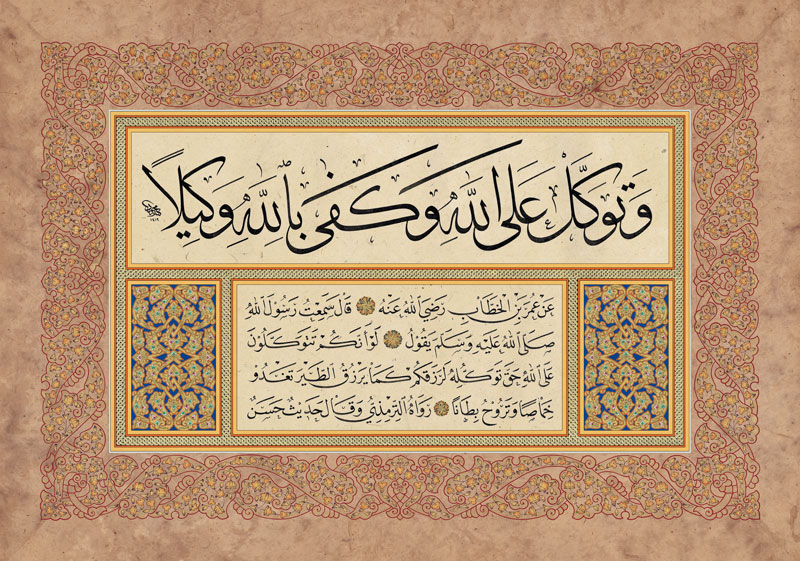 وَتَوَكَّلْ عَلَى اللَّهِ وَكَفَى بِٱللَّهِ وَكِيلًا
عَنْ عُمَرَ بْنِ الْخَطَّابِ رَضِيَ اللهُ عَنْهُ قَالَ سَمِعْتُ رَسُولَ اللهِ
صَلَّى اللهُ عَلَيْهِ وَسَلَّمَ يَقُولُ لَوْ أَنَّكُمْ تَتَوَكَّلُونَ
عَلَى اللهِ حَقَّ تَوَكُّلِهِ لَرَزَقَكُمْ كَمَا يَرْزُقُ الطَّيْرَ تَغْدُو
خِمَاصًا وَتَرُوحُ بِطَانًا رَوَاهُ التِّرْمِذِيُّ وَقَالَ حَدِيثٌ حَسَنٌ